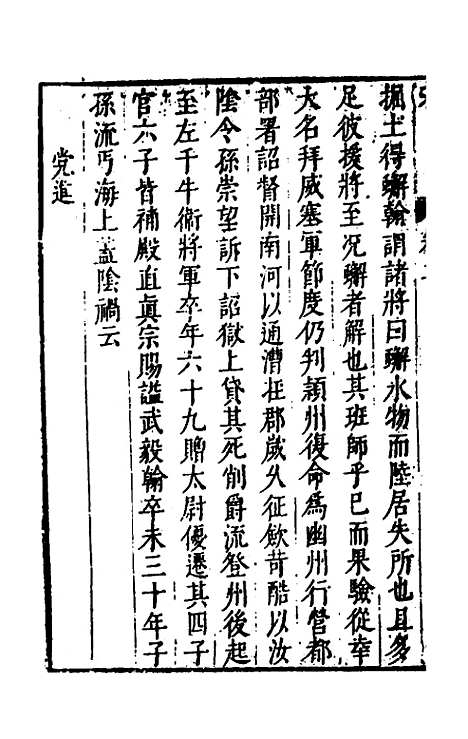 掘土得蠏翰謂諸將曰蠏水物而陸居失所也且多
足彼援將至况蠏者解也其班師乎已而果驗從幸
大名拜威塞軍節度仍判頴州復命爲幽州行營都
部署詔督開南河以通漕在郡歲久征歛苛酷以汝
陰令孫崇望訴下詔獄上貸其死削爵流登州後起
至左千牛衞將軍卒年六十九贈太尉優遷其四子
官六子皆補殿直眞宗賜謚武毅翰卒未三十年子
孫流丐海上蓋陰禍云
党進